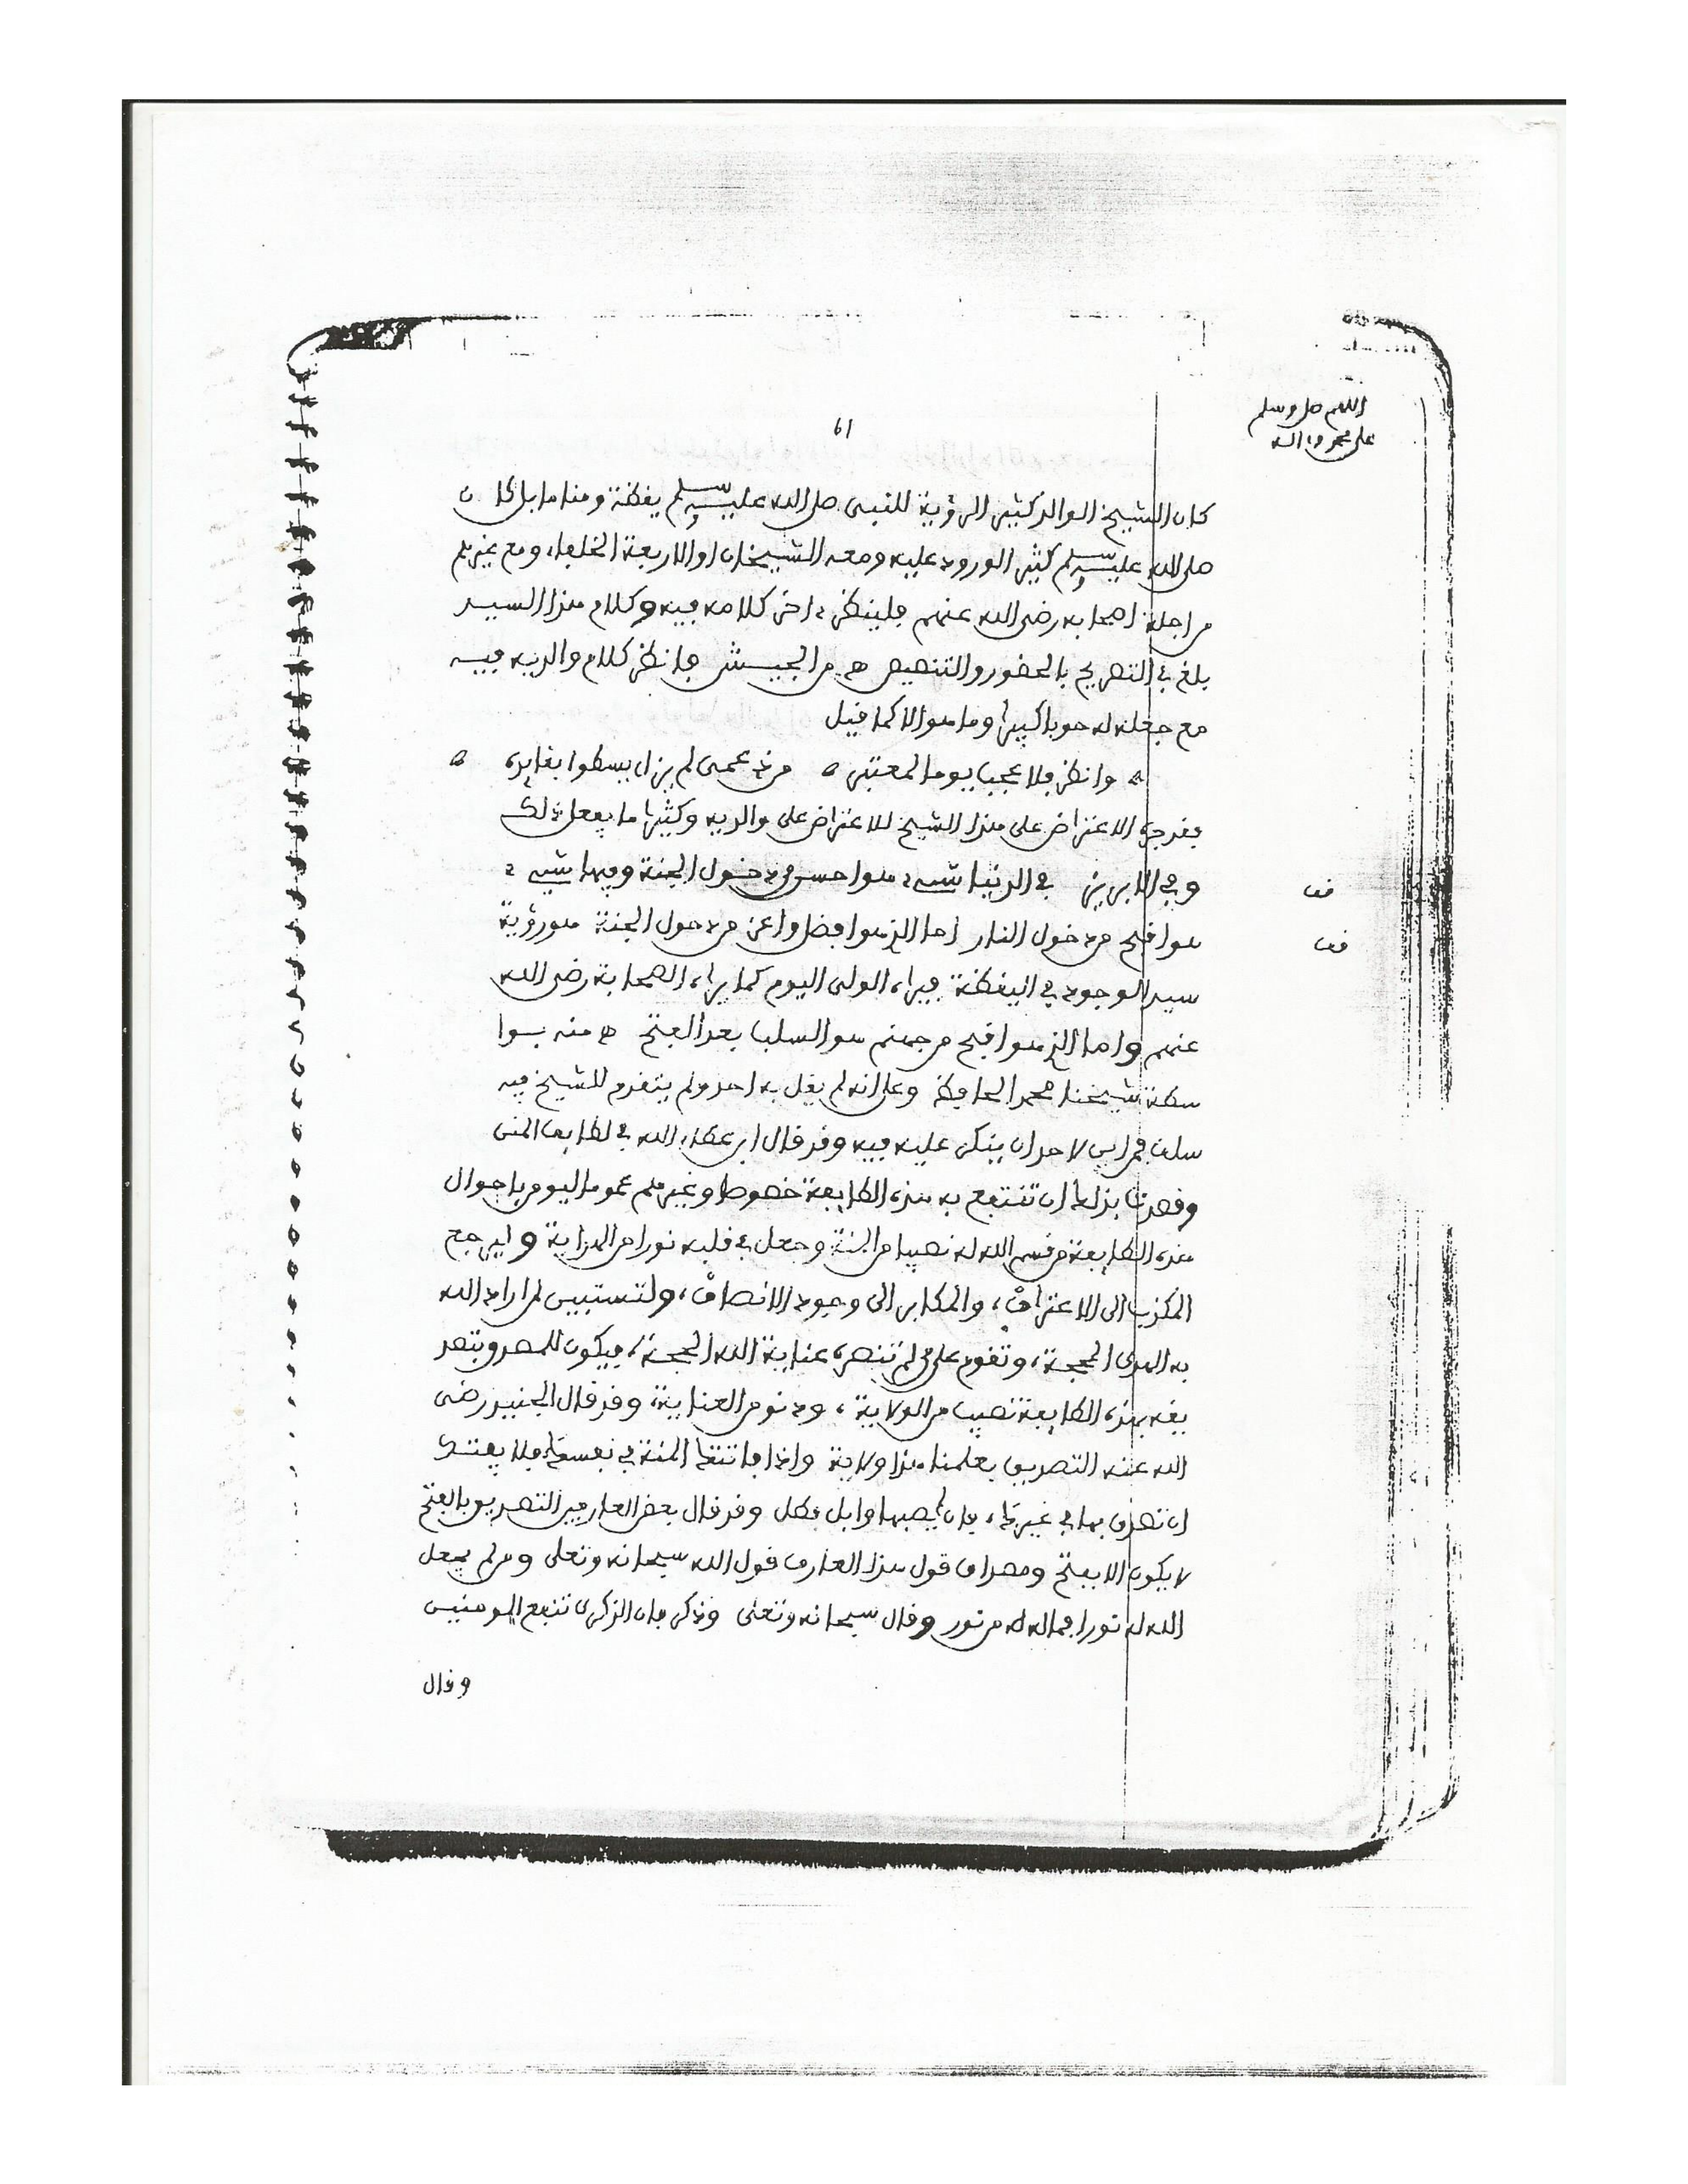 اللهم صل وسلم
على محمد وءاله
61
كان الشيخ الوالد كثير الرؤية للنبى صلى الله عليه وسلم يقظة ومناما بل كان
صلى الله عليه وسلم كثير الورود عليه ومعه الشيخان او الاربعة الخلفاء ومع غيرهم
من اجلة اصحابه رضى الله عنهم فلينظر ءاخر كلامه فيه وكلام هذا السيد
بلغ فى التصريح بالحضور والتنصيص ه من الجيش فانظر كلام والديه فيه
مع جعله له حوبا كبيرا وما هو الا كما قيل
ه وانظر فلا عجبا يوما لمعتبر ه من ذى عمى لم يزل يسطوا بقايده ه
فقد جره الاعتراض على هذا الشيخ للاعتراض على والديه وكثيرا ما يفعل ذلك
وفى الابريز فى الدنيا شىء هو احسن من دخول الجنة وفيها شىء
هو اقبح من دخول النار اما الذى هو افضل واعز من دخول الجنة هو رؤية
سيد الوجود فى اليقظة فيراه الولى اليوم كما يراه الصحابة رضى الله
عنهم واما الذى هو اقبح من جهنم هو السلب بعد الفتح ه منه بوا
سطة شيخنا محمد الحافظ وعلى انه لم يقل به احد ولم يتقدم للشيخ فيه
سلف فمن اين لاحد ان ينكر عليه فيه وقد قال ابن عطاء الله فى لطايف المنن
وقصدنا بذلك ان تنتفع به هذه الطايفة خصوصا وغيرهم عموما ليومن باحوال
هذه الطايفة من قسم الله له نصيبا من المنة وجعل فى قلبه نورا من الهداية وليرجع
المكذب الى الاعتراف، والمكابر الى وجود الانصاف، ولتستبين لمن اراد الله
به الهدى المحجة، وتقوم على من لم تنصره عناية الله الحجة، فيكون للمصدق بتصد
يقه بهذه الطايفة نصيب من الولاية، ودنو من العناية، وقد قال الجنيد رضى
الله عنه التصديق بعلمنا هذا ولاية واذا فاتتك المنة فى نفسك فلا يفتك
ان تصدق بها فى غيرك، فان لم يصبها وابل فطل وقد قال بعض العارفين التصديق بالفتح
لا يكون الا بفتح ومصداق قول هذا العارف قول الله سبحانه وتعلى ومن لم يجعل
الله له نورا فما له من نور وقال سبحانه وتعلى وذكر فان الذكرى تنفع المومنين
وقال